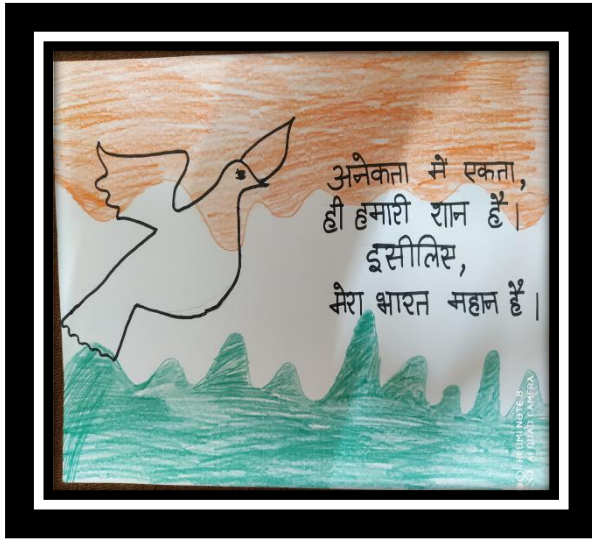 अनेकता में एकता,
ही हमारी शान हैं।
इसीलिए,
मेरा भारत महान हैं।
REDMI NOTE 8
AI QUAD CAMERA